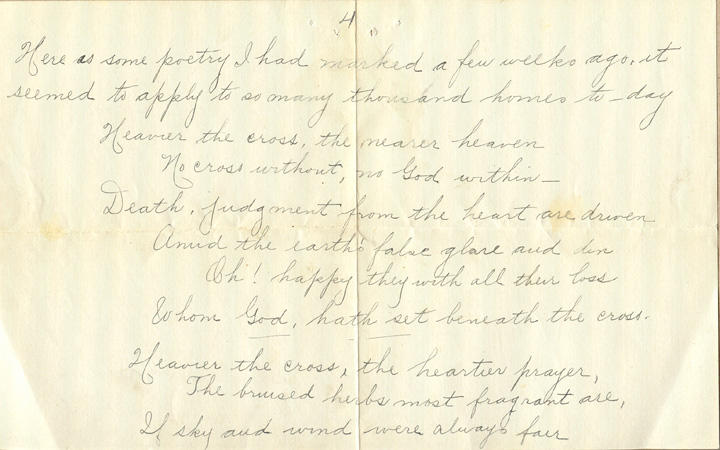 4
Here is some poetry I had marked a few weeks ago, it
seemed to apply to so many thousand homes to-day
Heavier the cross, the nearer heaven
No cross without, no God within—
Death, judgment from the heart are driven
Amid the earth's false glare and din
Oh! happy they with all their loss
Whom God, hath set beneath the cross.
Heavier the cross, the heartier prayer,
The bruised herbs most fragrant are,
If sky and wind were always fair